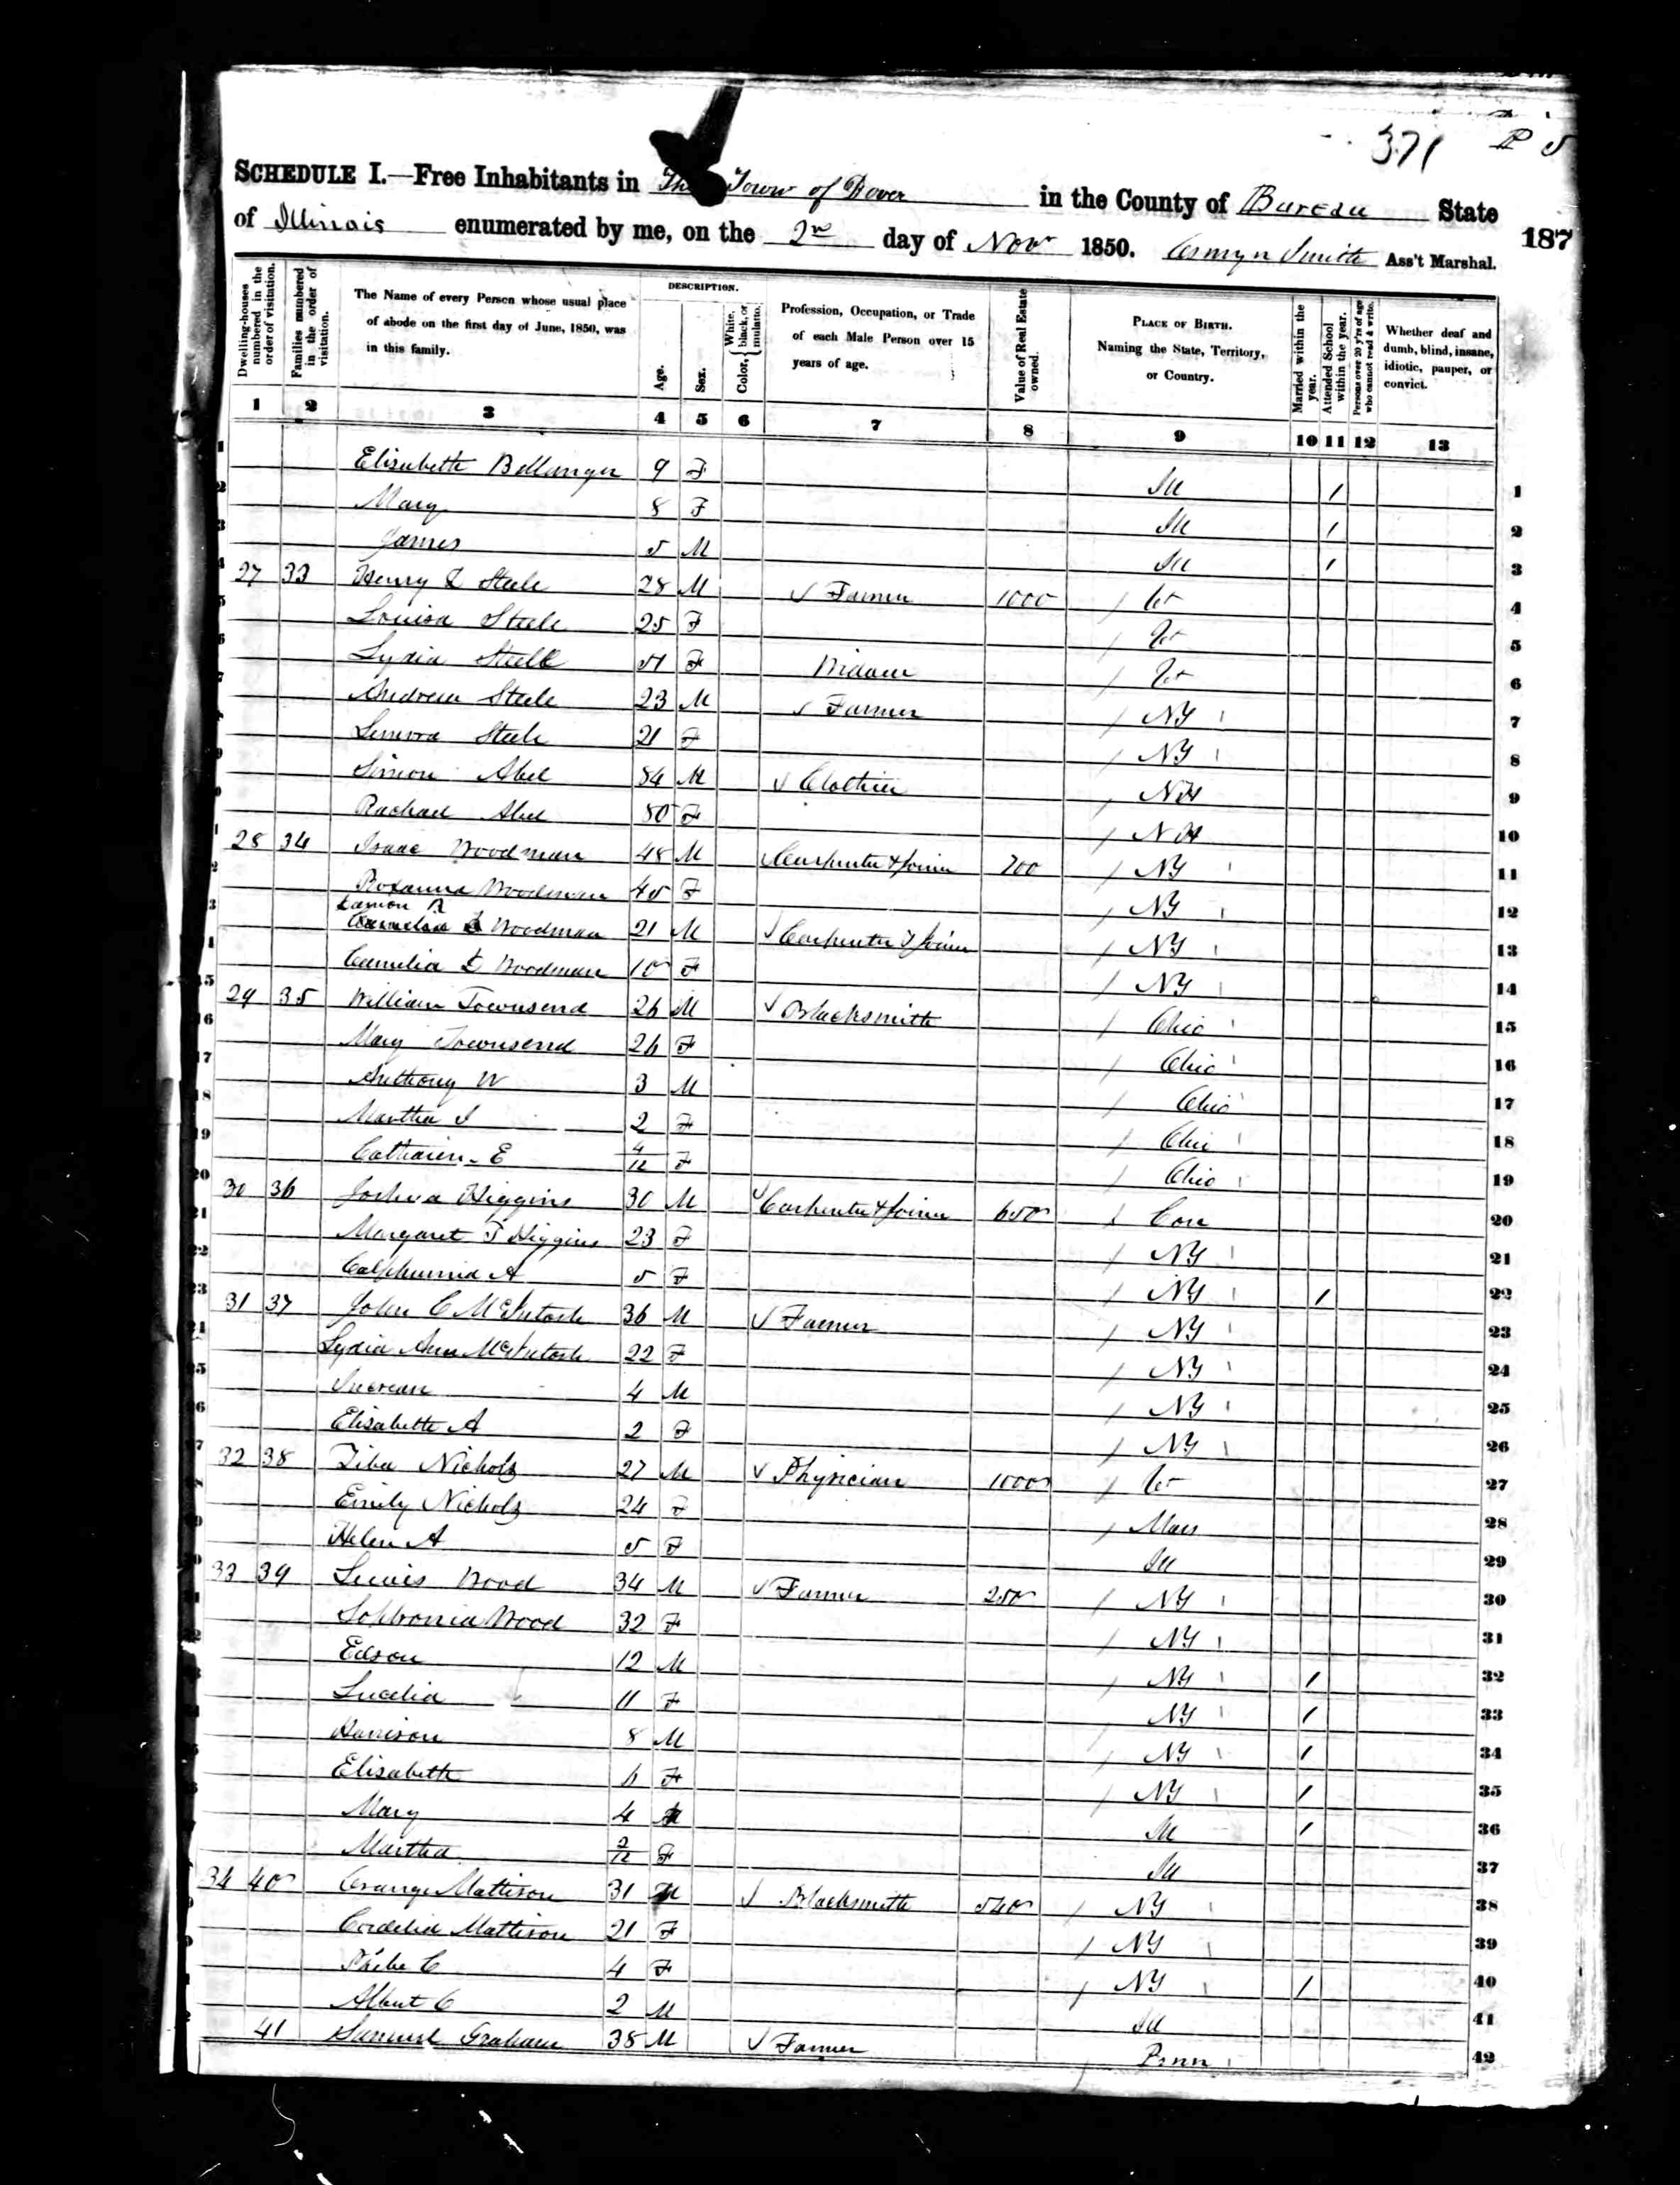 371
P 5
SCHEDULE I.—Free Inhabitants in The Town of Dover in the County of Bureau State
of Illinois enumerated by me, on the 2nd day of Nov 1850. Smith Ass't Marshal.
187
Dwelling-houses numbered in the order of visitation.
Families numbered in the order of visitation.
The Name of every Person whose usual place of abode on the first day of June, 1850, was in this family.
DESCRIPTION.
Age.
Sex.
Color, White, black, or mulatto.
Profession, Occupation, or Trade of each Male Person over 15 years of age.
Value of Real Estate owned.
PLACE OF BIRTH. Naming the State, Territory, or Country.
Married within the year.
Attended School within the year.
Persons over 20 y'rs of age who cannot read & write.
Whether deaf and dumb, blind, insane, idiotic, pauper, or convict.
1 2 3 4 5 6 7 8 9 10 11 12 13
1 Elisabeth 9 F Ill 1 1
2 Mary 8 F Ill 1 2
3 James 5 M Ill 1 3
27 33 Henry Steele 28 M Farmer 1000 4
5 Louisa Steele 25 F 5
6 Lydia Steele 51 F Widow 6
7 Andrew Steele 23 M Farmer NY 7
Steele 21 F NY 8
9 Simon Abel 84 M Clothier NH 9
Rachael Abel 80 F NH 10
28 34 Isaac Woodman 48 M Carpenter & Joiner 700 NY 11
2 Roxanna Woodman 45 F NY 12
3 Woodman 21 M Carpenter & Joiner NY 13
Woodman 10 F NY 14
15 29 35 William Townsend 26 M Blacksmith Ohio 15
16 Mary Townsend 26 F Ohio 16
17 Anthony W 3 M Ohio 17
18 Martha J 2 F Ohio 18
19 E 4/12 F Ohio 19
20 30 36 Joshua Higgins 30 M Carpenter & Joiner 650 Con 20
21 Margaret Higgins 23 F NY 21
22 A 5 F NY 1 22
23 31 37 John C McIntosh 36 M Farmer NY 23
Lydia Ann McIntosh 22 F NY 24
4 M NY 25
Elisabeth A 2 F NY 26
32 38 Ziba Nichols 27 M Physician 1000 27
Emily Nichols 24 F Mass 28
Helen A 5 F Ill 29
33 39 Lewis Wood 34 M Farmer 250 NY 30
Sophronia Wood 32 F NY 31
Edson 12 M NY 1 32
Lucelia 11 F NY 1 33
Harrison 8 M NY 1 34
Elisabeth 6 F NY 1 35
Mary 4 Ill 1 36
Martha 2/12 F Ill 37
34 40 Orange Mattison 31 M Blacksmith 540 NY 38
Cordelia Mattison 21 F NY 39
Phebe C 4 F NY 1 40
Albert C 2 M Ill 41
41 Samuel Graham 38 M Farmer Penn 42